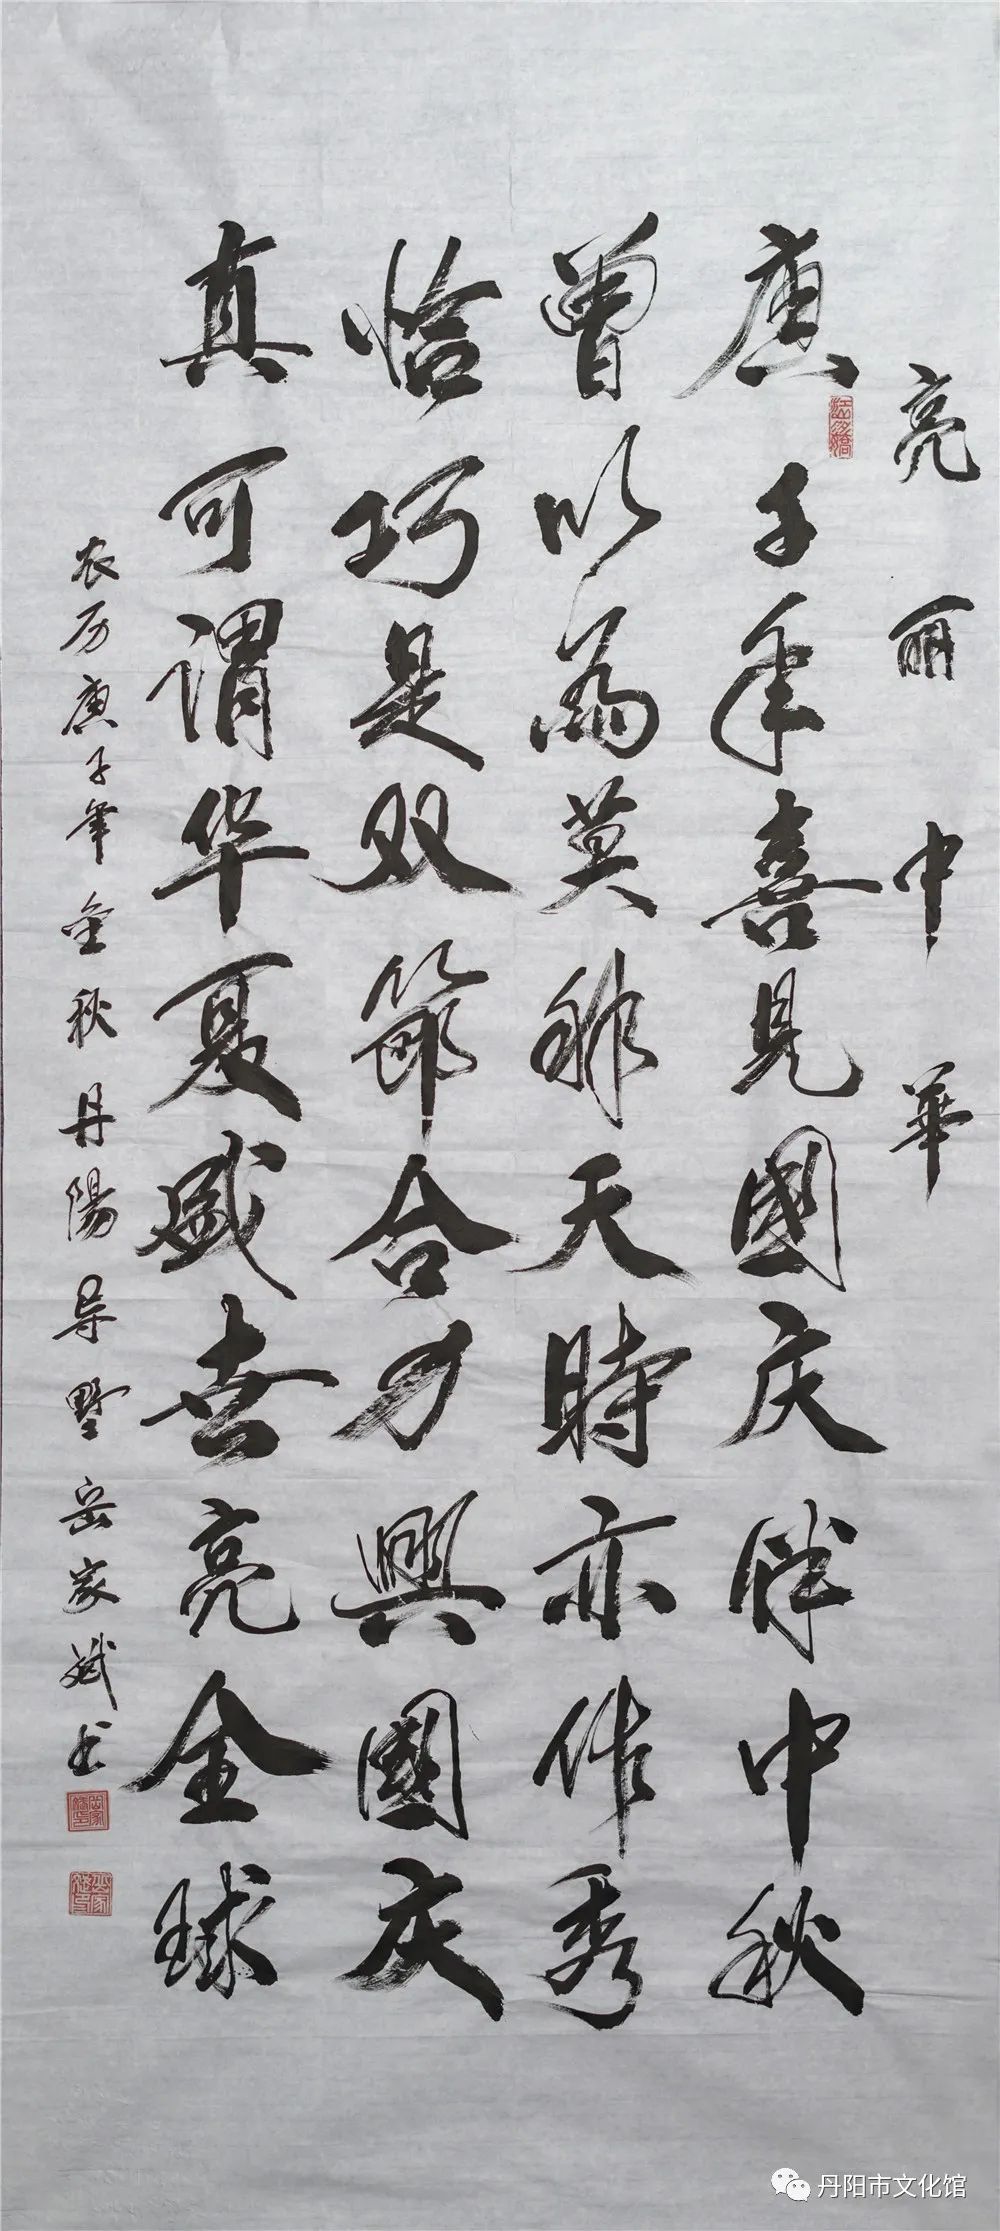 亮丽中華
庚子年喜見國庆伴中秋
曾以為莫非天時亦作秀
恰巧是双節合力興國庆
真可謂华夏盛世亮全球
农历庚子年金秋丹陽导墅岳家斌书
丹阳市文化馆